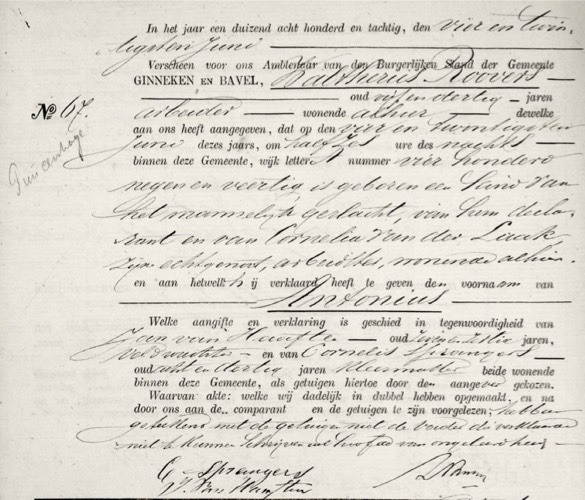 In het jaar een duizend acht honderd en tachtig, den vier en twin
tigsten Juni
Verscheen voor ons Ambtenaar van den Burgerlijken Stand der Gemeente
GINNEKEN EN BAVEL, Waltherus Roovers
oud vijf en dertig jaren
No. 67. arbeider wonende alhier dewelke
aan ons heeft aangegeven, dat op den vier en twintigsten
Juni dezes jaars, om half zes ure des nachts
binnen deze Gemeente, wijk letter nummer vier honderd
negen en veertig is geboren een kind van
het mannelijk geslacht, van hem decla
rant en van Cornelia van der Laak,
zijn echtgenoot, arbeidster, wonende alhier
en aan hetwelk hij verklaard heeft te geven den voornaam van
Antonius
Welke aangifte en verklaring is geschied in tegenwoordigheid van
Jan van Haaften oud zeven en zestig jaren,
veldwachter en van Cornelis Sprangers
oud acht en dertig jaren kleermaker beide wonende
binnen deze Gemeente, als getuigen hiertoe door den aangever gekozen.
Waarvan akte: welke wij dadelijk in dubbel hebben opgemaakt, en na
door ons aan de comparant en de getuigen te zijn voorgelezen, hebben
geteekend met de getuigen, niet de vader die verklaarde
niet te kunnen schrijven uit hoofde van ongeleerdheid
C. Sprangers
J. Van Haaften